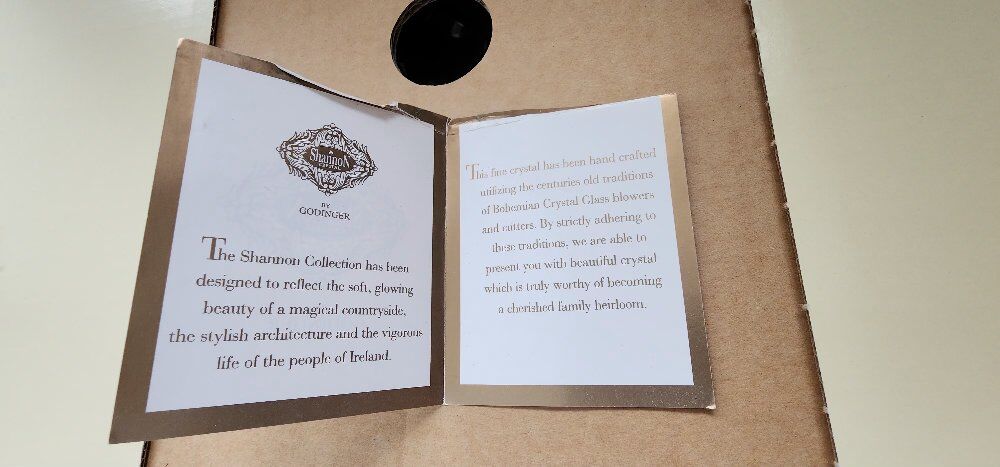 Shannon
BY
GODINGER
The Shannon Collection has been
designed to reflect the soft, glowing
beauty of a magical countryside,
the stylish architecture and the vigorous
life of the people of Ireland.
This fine crystal has been hand crafted
utilizing the centuries old traditions
of Bohemian Crystal Glass blowers
and cutters. By strictly adhering to
these traditions, we are able to
present you with beautiful crystal
which is truly worthy of becoming
a cherished family heirloom.